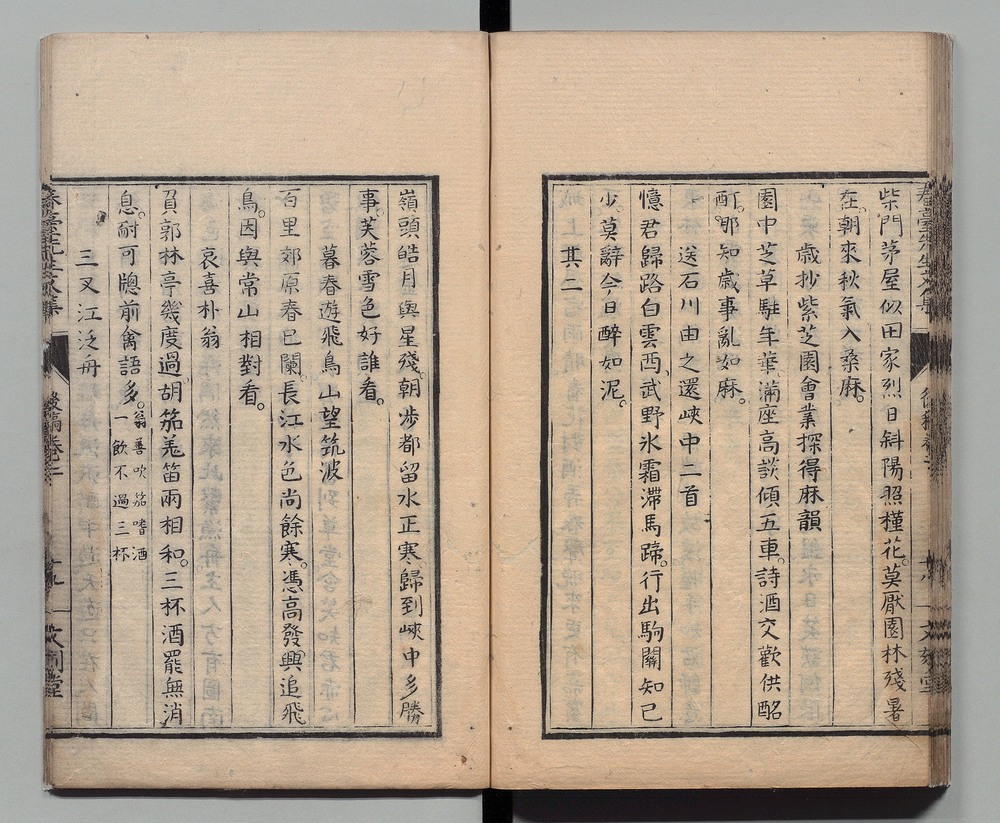 柴門茅屋似田家。烈日斜陽照槿花。莫厭園林殘暑
在。朝來秋氣入桑麻。
歲抄紫芝園會業探得麻韻
園中芝草駐年華。滿座高談傾五車。詩酒交歡供酩
酊。那知歲事亂如麻。
送石川由之還峽中二首
憶君歸路白雲西。武野氷霜滯馬蹄。行出駒關知已
少。莫辭今日醉如泥。
其二
嶺頭皓月與星殘。朝渉都留水正寒。歸到峽中多勝
事。芙蓉雪色好誰看。
暮春遊飛鳥山望筑波
百里郊原春已闌。長江水色尚餘寒。憑高發興追飛
鳥。因與常山相對看。
哀喜朴翁
負郭林亭幾度過。胡笳羌笛兩相和。三杯酒罷無消
息。耐可牕前禽語多。翁善吹笳嗜酒
一飲不過三杯
三叉江泛舟
春臺先生文集
後稿卷二
十九